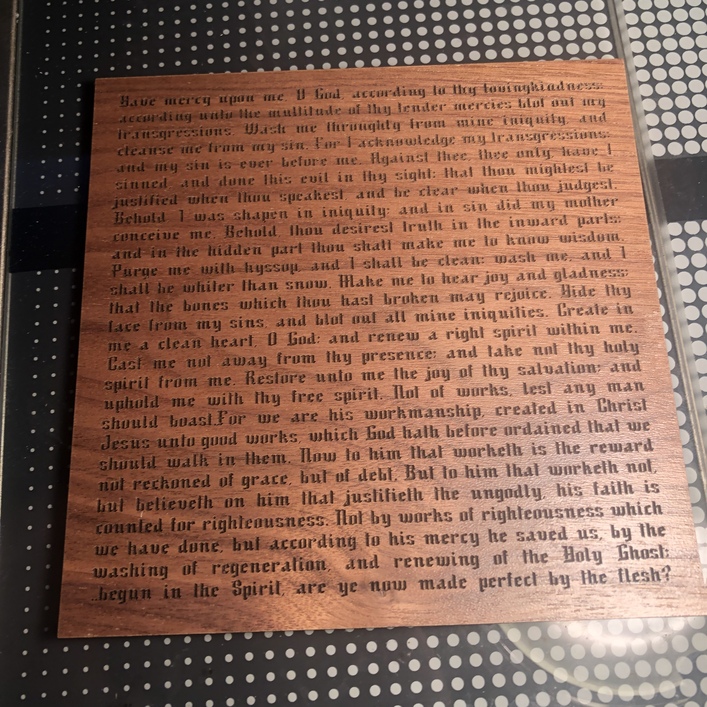 Have mercy upon me, O God, according to thy lovingkindness:
according unto the multitude of thy tender mercies blot out my
transgressions. Wash me throughly from mine iniquity, and
cleanse me from my sin. For I acknowledge my transgressions:
and my sin is ever before me. Against thee, thee only, have I
sinned, and done this evil in thy sight: that thou mightest be
justified when thou speakest, and be clear when thou judgest.
Behold, I was shapen in iniquity; and in sin did my mother
conceive me. Behold, thou desirest truth in the inward parts:
and in the hidden part thou shalt make me to know wisdom.
Purge me with hyssop, and I shall be clean: wash me, and I
shall be whiter than snow. Make me to hear joy and gladness;
that the bones which thou hast broken may rejoice. Hide thy
face from my sins, and blot out all mine iniquities. Create in
me a clean heart, O God; and renew a right spirit within me.
Cast me not away from thy presence; and take not thy holy
spirit from me. Restore unto me the joy of thy salvation; and
uphold me with thy free spirit. Not of works, lest any man
should boast.For we are his workmanship, created in Christ
Jesus unto good works, which God hath before ordained that we
should walk in them. Now to him that worketh is the reward
not reckoned of grace, but of debt. But to him that worketh not,
but believeth on him that justifieth the ungodly, his faith is
counted for righteousness. Not by works of righteousness which
we have done, but according to his mercy he saved us, by the
washing of regeneration, and renewing of the Holy Ghost;
..begun in the Spirit, are ye now made perfect by the flesh?